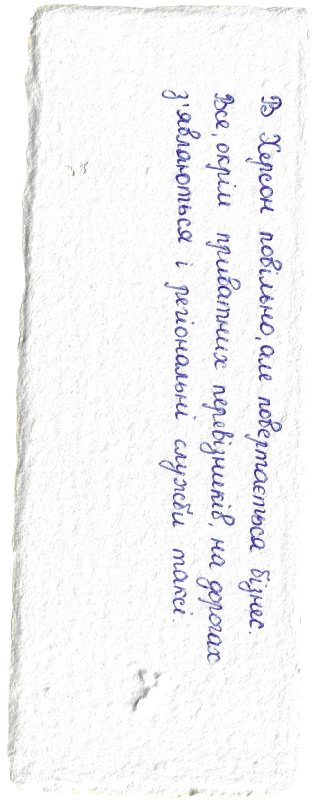 В Херсон повільно, але повертається бізнес.
Все, окрім приватних перевізників, на дорогах
з'являються і регіональні служби таксі.